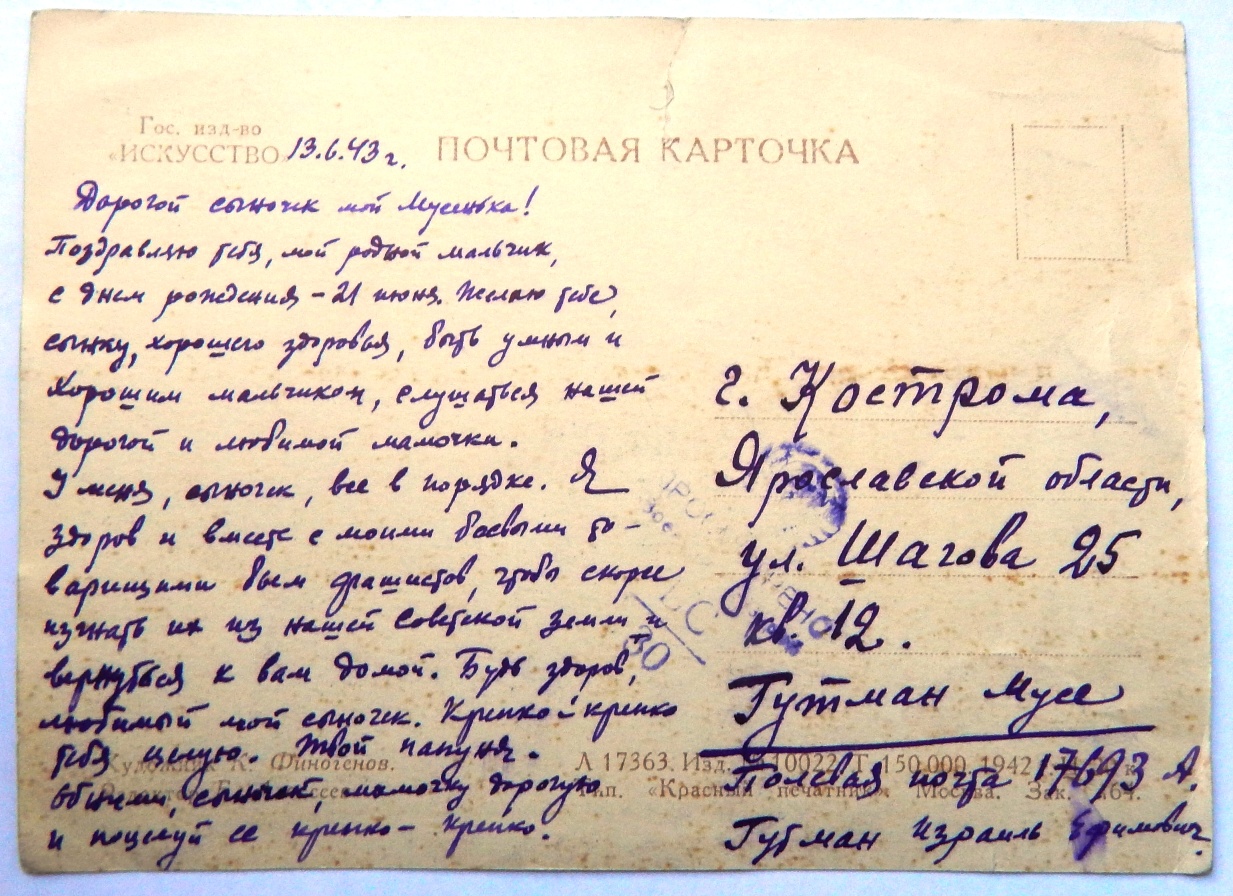 Гос. изд-во
«ИСКУССТВО»
13.6.43 г.
ПОЧТОВАЯ КАРТОЧКА
Дорогой сыночек мой Мусенька!
Поздравляю тебя, мой родной мальчик,
с днем рождения – 21 июня. Желаю тебе,
сынку, хорошего здоровья, быть умным и
хорошим мальчиком, слушаться нашей
дорогой и любимой мамочки.
У меня, сыночек, все в порядке. Я
здоров и вместе с моими боевыми то-
варищами бьем фашистов, чтобы скорее
изгнать их из нашей Советской земли и
вернуться к вам домой. Будь здоров,
любимый мой сыночек. Крепко-крепко
тебя целую. Твой папуня.
Обними, сыночек, мамочку дорогую
и поцелуй ее крепко-крепко.
г. Кострома,
Ярославской области,
ул. Шагова 25
кв. 12.
Гутман Мусе
Полевая почта 17693 А.
Гутман Израиль Ефимович.
Художник К. Финогенов.
Л 17363. Изд. 10022. Т. 150.000. 1942
Тип. «Красный печатник» Москва. Зак.
30